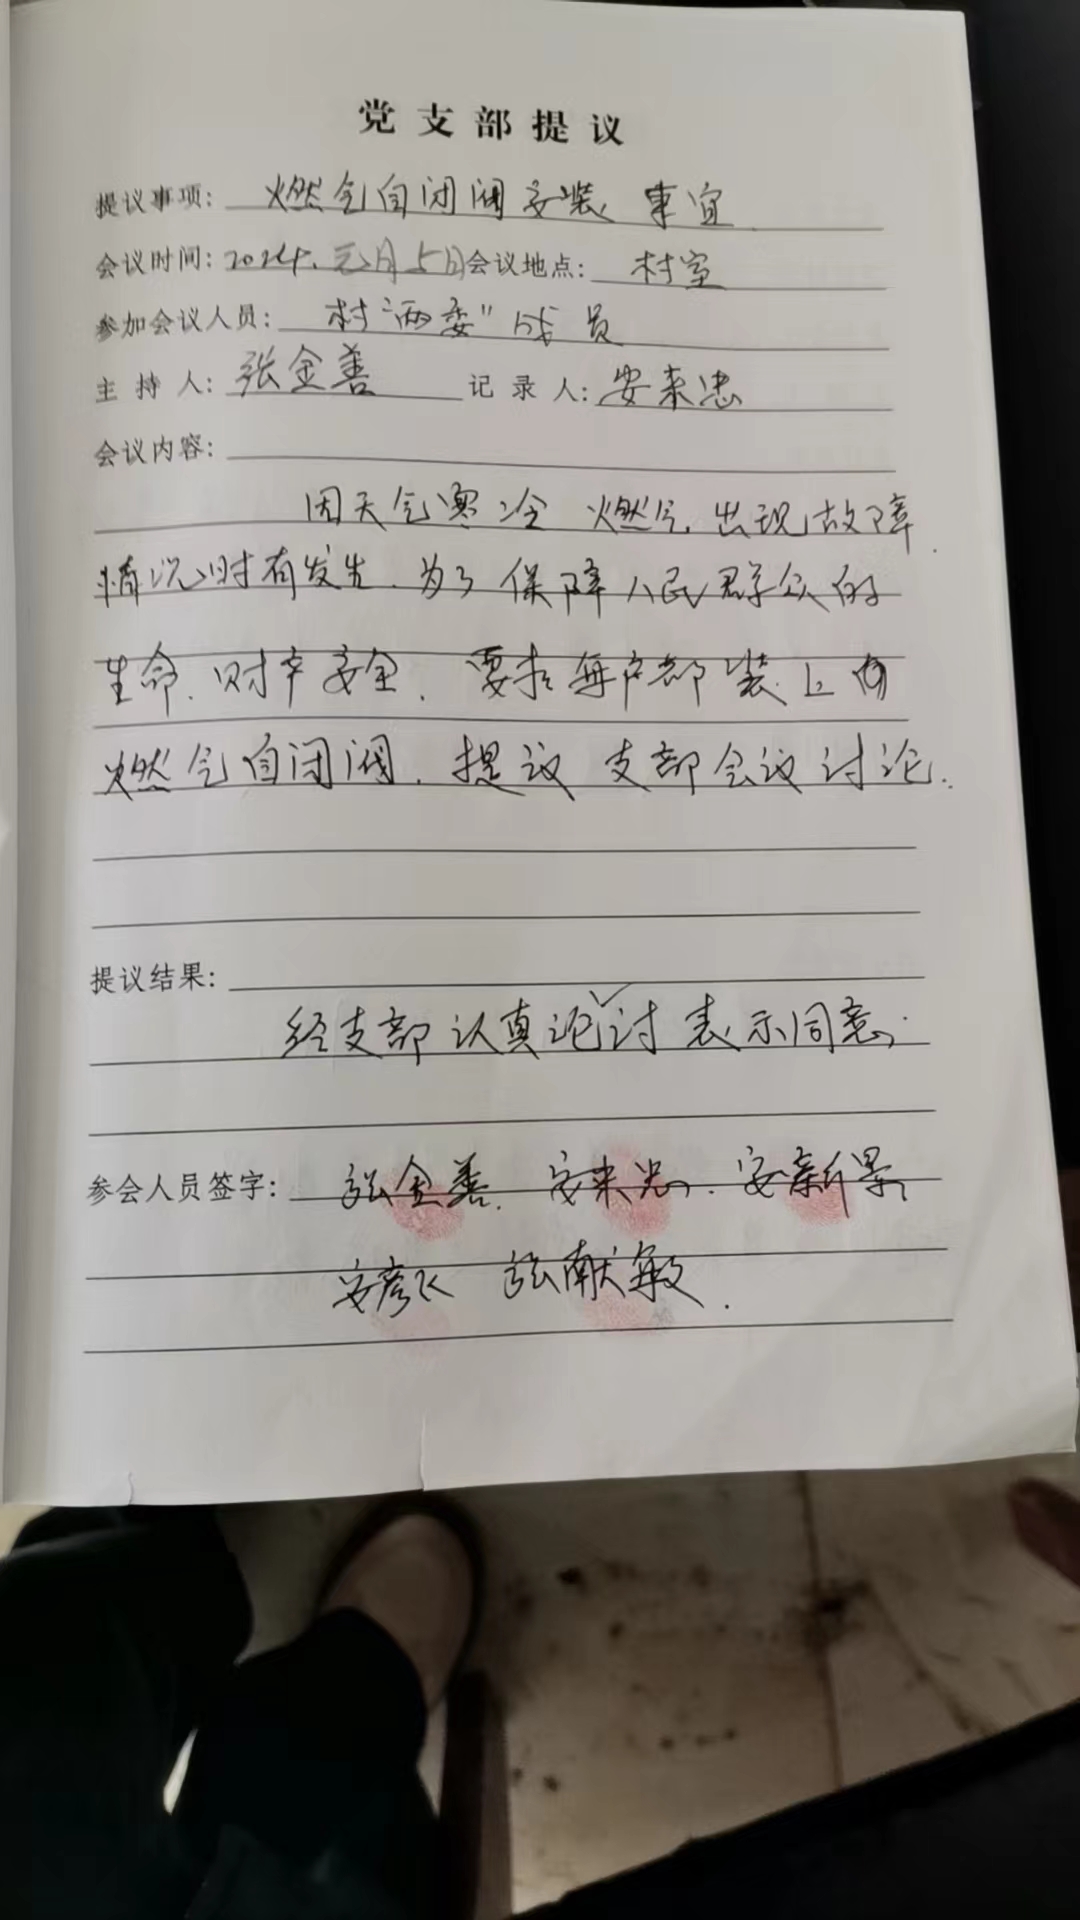 党支部提议
提议事项: 燃气自闭阀安装 事宜
会议时间: 2024.元月5日 会议地点: 村室
参加会议人员: 村“两委”成员
主持人: 张金善 记录人: 安来忠
会议内容:
因天气寒冷 燃气出现故障
情况时有发生.为了保障人民群众的
生命.财产安全.要求每户都装上
燃气自闭阀.提议 支部会议讨论.
提议结果:
经支部认真论讨 表示同意.
参会人员签字: 张金善. 安来忠. 安新景
安彦飞 张献敏.